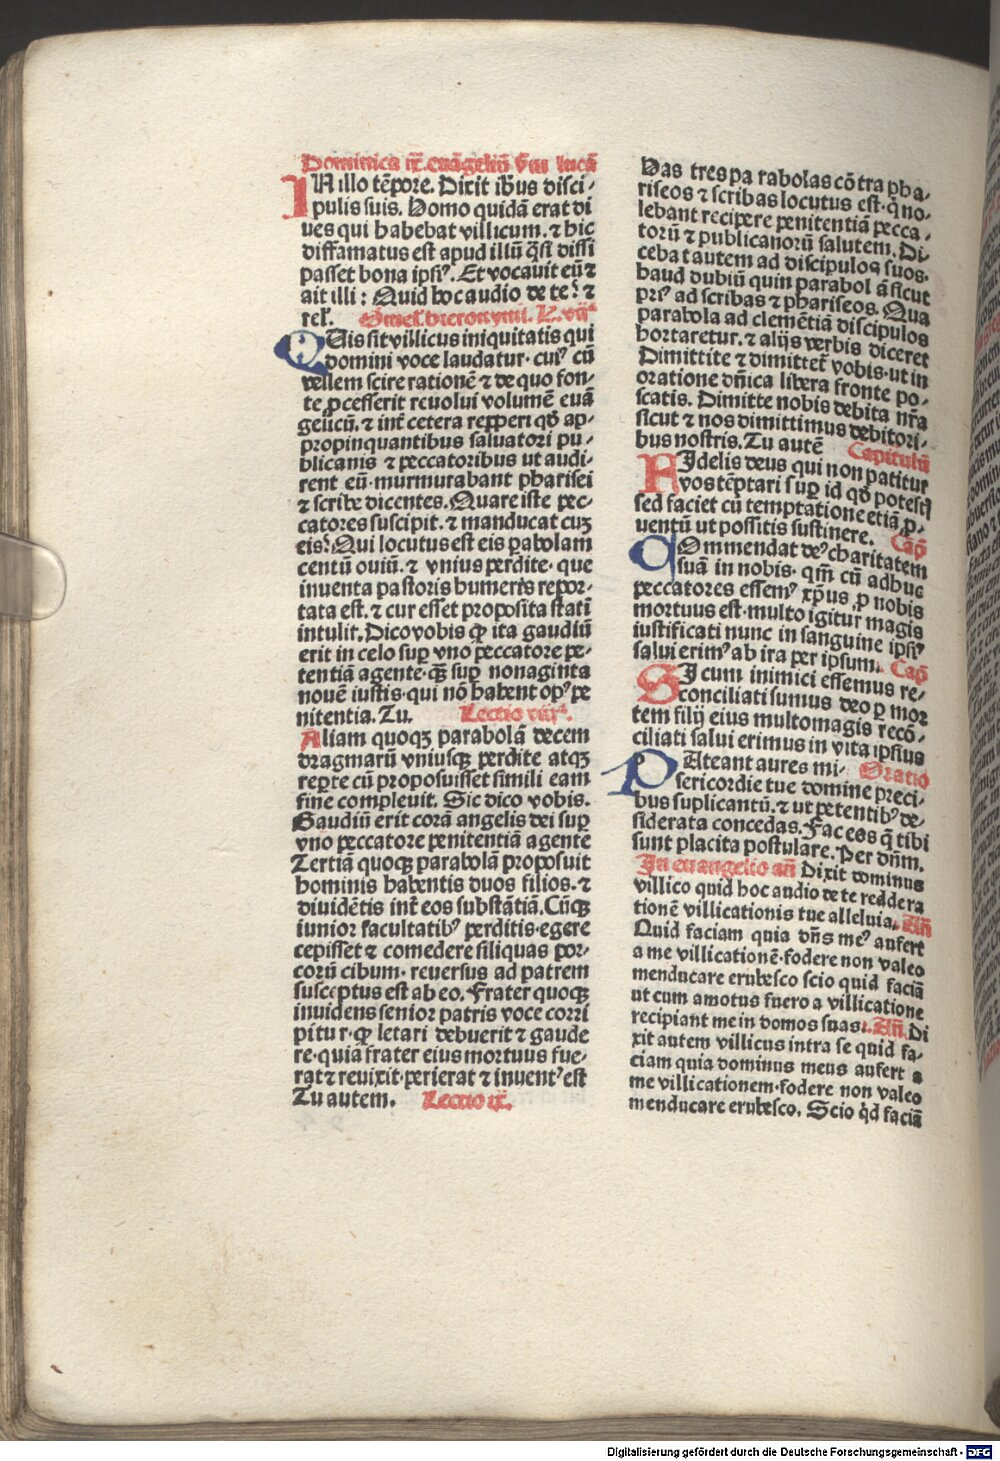 Dominica ix. euāgeliū sm̄ lucā
IN illo tēpore. Dixit ihus disci⸗
pulis suis. Homo quidā erat di
ues qui habebat villicum. ⁊ hic
diffamatus est apud illū q̄si dissi
passet bona ipsiꝰ. Et vocauit eū ⁊
ait illi : Quid hoc audio de te? ⁊
rel. Omel. hieronymi. L. vijᵃ
QVis sit villicus iniquitatis qui
domini voce laudatur. cuiꝰ cū
vellem scire rationē ⁊ de quo fon⸗
te ꝓcesserit reuolui volumē euā
gelicū. ⁊ int̄ cetera repperi qd̄ ap⸗
propinquantibus saluatori pu⸗
blicanis ⁊ peccatoribus ut audi⸗
rent eū. murmurabant pharisei
⁊ scribe dicentes. Quare iste pec⸗
catores suscipit. ⁊ manducat cuꝫ
eis? Qui locutus est eis ꝑabolam
centū ouiū. ⁊ vnius perdite. que
inuenta pastoris humeris repor⸗
tata est. ⁊ cur esset proposita stati
intulit. Dico vobis ꝙ ita gaudiū
erit in celo suꝑ vno peccatore pe⸗
tentiā agente. q̄ꝫ suꝑ nonaginta
nouē iustis. qui nō habent opꝰ pe
nitentia. Tu. Lectio viijᵃ.
Aliam quoqꝫ parabolā decem
dragmarū vniusqꝫ perdite atqꝫ
reꝑte cū proposuisset simili eam
fine compleuit. Sic dico vobis.
Gaudiū erit corā angelis dei suꝑ
vno peccatore penitentiā agente
Tertiā quoqꝫ parabolā proposuit
hominis habentis duos filios. ⁊
diuidētis int̄ eos substātiā. Cūqꝫ
iunior facultatibꝰ perditis. egere
cepisset ⁊ comedere siliquas por⸗
corū cibum. reuersus ad patrem
susceptus est ab eo. Frater quoqꝫ
inuidens senior patris voce corri
pitur. ꝙ letari debuerit ⁊ gaude
re. quia frater eius mortuus fue⸗
rat ⁊ reuixit. perierat ⁊ inuentꝰ est
Tu autem. Lectio ix.
Has tres pa rabolas cōtra pha⸗
riseos ⁊ scribas locutus est. q̄ no⸗
lebant recipere penitentiā pecca⸗
torū ⁊ publicanorū salutem. Di⸗
ceba t autem ad discipulos suos.
haud dubiū quin parabol ā sicut
priꝰ ad scribas ⁊ phariseos. Qua
parabola ad clemētiā discipulos
hortaretur. ⁊ alijs verbis diceret
Dimittite ⁊ dimittet̄ vobis. ut in
oratione dn̄ica libera fronte po⸗
scatis. Dimitte nobis debita nr̄a
sicut ⁊ nos dimittimus debitori⸗
bus nostris. Tu autē Capitulū
FIdelis deus qui non patitur
vos tēptari suꝑ id qd̄ potestl
sed faciet cū temptatione etiā ꝓ⸗
uentū ut possitis sustinere. Cap̄
COmmendat deꝰ charitatem
suā in nobis. qm̄ cū adhuc
peccatores essemꝰ xp̄us ꝓ nobis
mortuus est. multo igitur magis
iustificati nunc in sanguine ipsiꝰ
salui erimꝰ ab ira per ipsum. Cap̄
SI cum inimici essemus re⸗
conciliati sumus deo ꝑ mor
tem filij eius multomagis recō⸗
ciliati salui erimus in vita ipsius
PAteant aures mi⸗ Oratio
sericordie tue domine preci⸗
bus suplicantū. ⁊ ut petentibꝰ de⸗
siderata concedas. Fac eos q̄ tibi
sunt placita postulare. Per dn̄m.
In euangelio an̄ Dixit dominus
villico quid hoc audio de te redde ra
tionē villicationis tue alleluia. An̄
Quid faciam quia dn̄s meꝰ aufert
a me villicationē. fodere non valeo
menducare erubesco scio quid faciā
ut cum amotus fuero a villicatione
recipiant me in domos suas. An̄. Di
xit autem villicus intra se quid fa⸗
ciam quia dominus meus aufert a
me villicationem. fodere non valeo
menducare erubesco. Scio qd̄ faciā
Digitalisierung gefördert durch die Deutsche Forschungsgemeinschaft - DFG